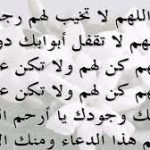 اللهم لا تخيب لهم رجـ
هم لا تقفل أبوابك دو
هم كن لهم ولا تكن عـ
هم كن لهم ولا تكن عـ
ك وجودك يا أرحم الـ
م هذا الدعاء ومنك الـ